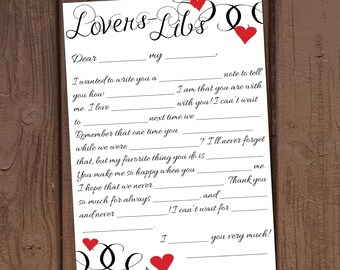 Lovers-Libs
Dear __________ my __________,
I wanted to write you a __________ note to tell
you how __________ I am that you are with
me. I love __________ with you! I can't wait
to __________ next time we __________.
Remember that one time you __________
while we were __________? I'll never forget
that, but my favorite thing you do is __________.
You make me so happy when you __________ me.
I hope that we never __________. Thank you
so much for always __________, and __________
and never __________! I can't wait for __________
__________.
I __________ you very much!
__________